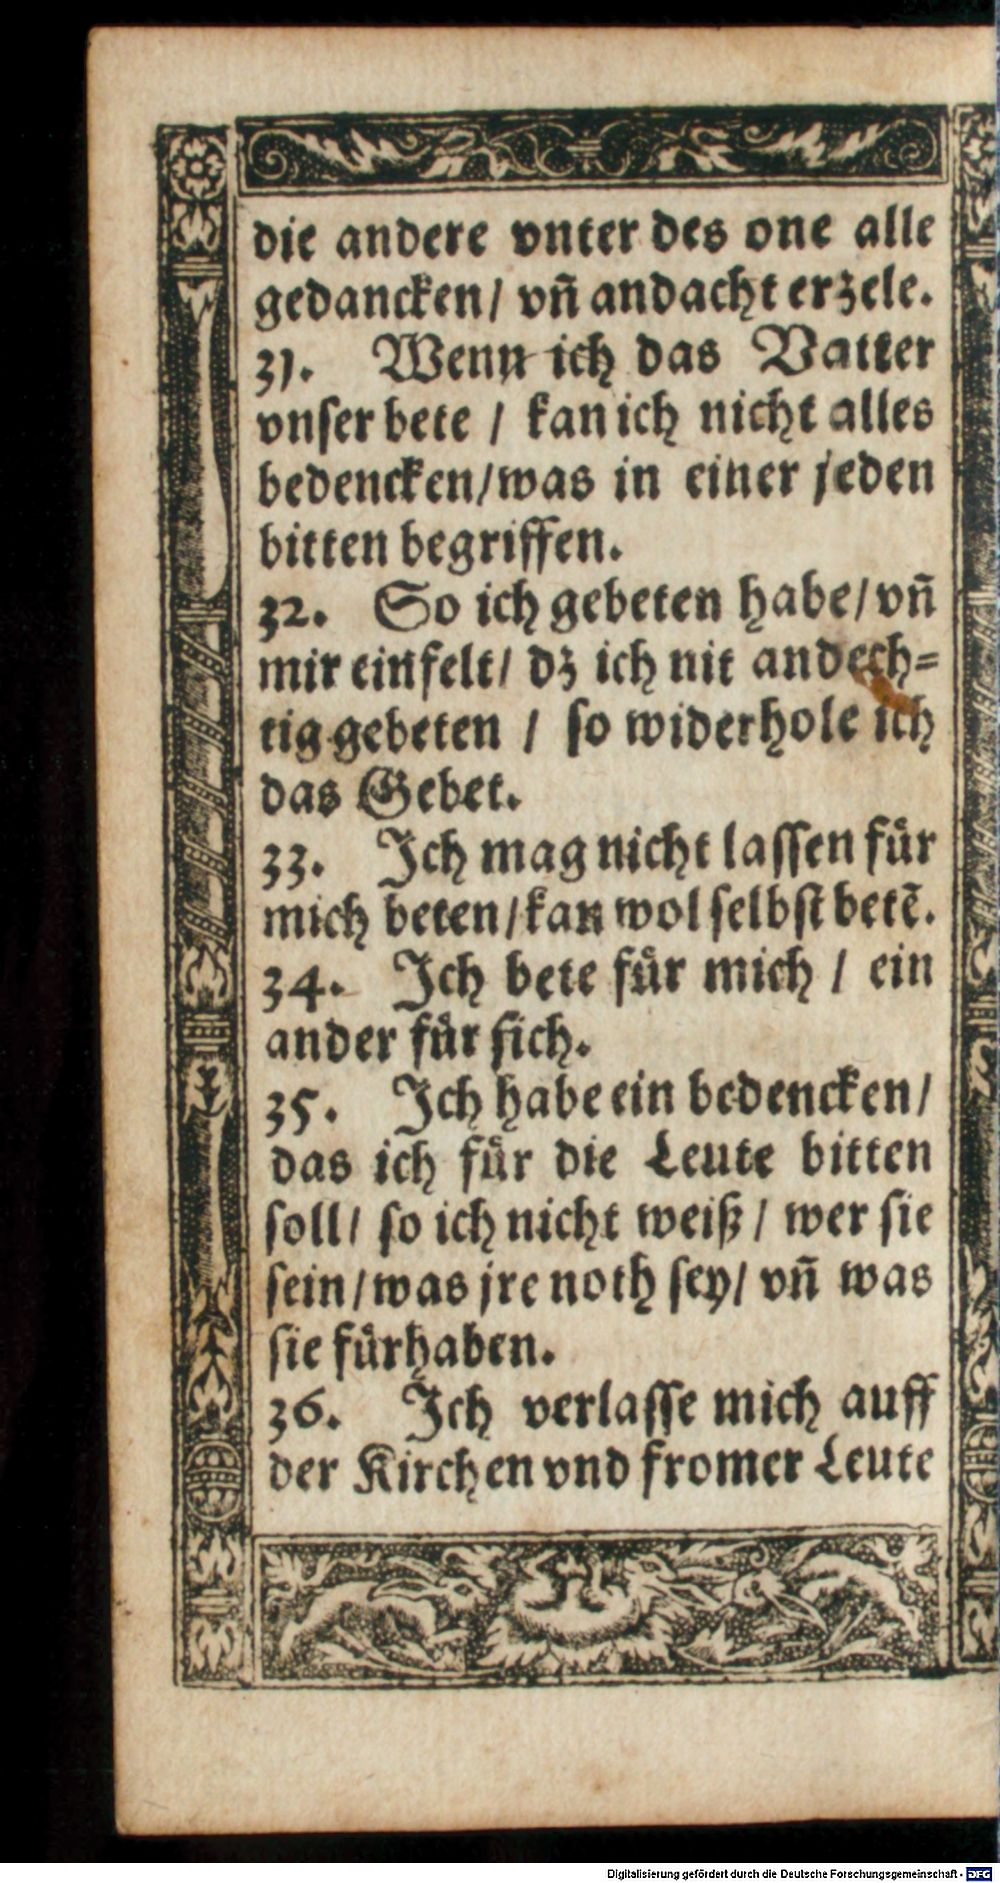 die andere vnter des one alle
gedancken/ vñ andacht erzele.
31. Wenn ich das Vatter
vnser bete / kan ich nicht alles
bedencken/was in einer jeden
bitten begriffen.
32. So ich gebeten habe/ vñ
mir einfelt/ dz ich nit andech-
tig gebeten / so widerhole ich
das Gebet.
33. Ich mag nicht lassen fuͤr
mich beten/kan wol selbst betē.
34. Ich bete fuͤr mich / ein
ander fuͤr sich.
35. Ich habe ein bedencken/
das ich fuͤr die Leute bitten
soll/ so ich nicht weiß/ wer sie
sein/was jre noth sey/ vñ was
sie fuͤrhaben.
36. Ich verlasse mich auff
der Kirchen vnd fromer Leute
Digitalisierung gefördert durch die Deutsche Forschungsgemeinschaft - DFG